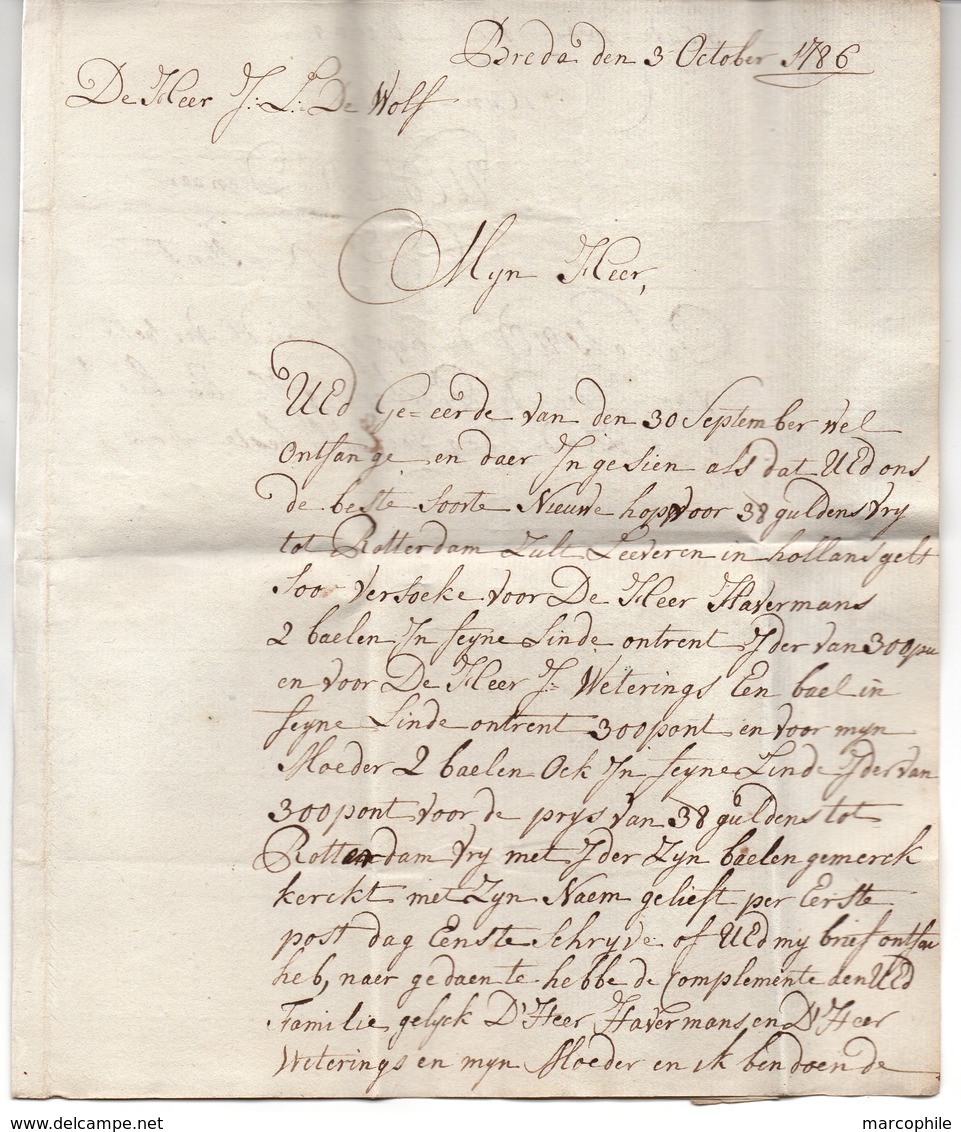 Breda den 3 October 1786
De Heer J: L: De Wolf
Myn Heer,
UEd Ge=eerde van den 30 September wel
ontfange en daer In gesien als dat UEd ons
de beste soorte Nieuwe hop voor 38 guldens vry
tot Rotterdam Zult Leeveren in hollans gelt
Soo versoeke voor De Heer Havermans
2 baelen In seyne Linde ontrent Jder van 300
en voor De Heer J= Weterings Een bael in
seyne Linde ontrent 300 pont en voor myn
Moeder 2 baelen Ock In seyne Linde Jder van
300 pont voor de prys van 38 guldens tot
Rotterdam vry met Jder Zyn baelen gemerck
kerckt met Zyn Naem gelieft per Eerste
post dag Eenste Schryve of UEd my brief ontfan
heb, naer gedaente hebbe de Complemente aen UEd
Familie gelyck D'Heer Havermans en D'Heer
Weterings en myn Moeder en ik ben doende
marcophile